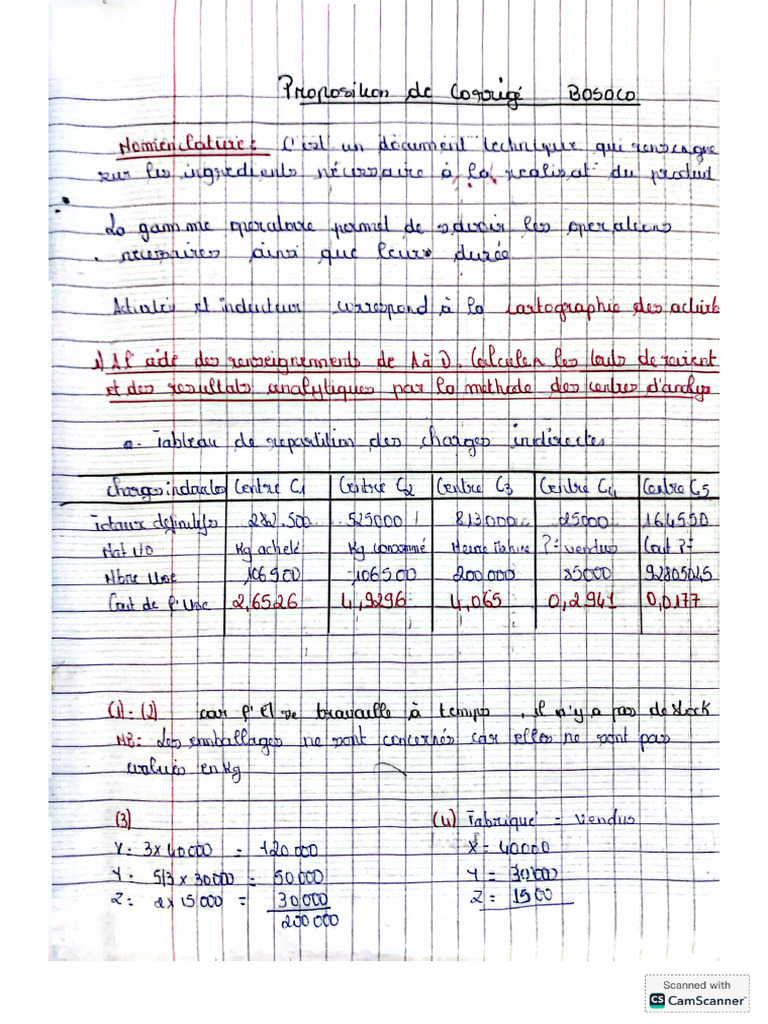 Proposition de Corrigé BOSOCO
Nomenclature: C'est un document technique qui renseigne
sur les ingredients nécessaire à la realisat° du produit
La gamme operatoire permet de savoir les operations
necessaires ainsi que leurs durée
Activités et inducteur correspond à la cartographie des activité
1) A l'aide des renseignements de A à D. Calculer les couts de revient
et des resultats analytiques par la methode des centres d'analys
a- Tableau de repartition des charges indirectes
Charges indirectes Centre C1 Centre C2 Centre C3 Centre C4 Centre C5
Totaux definitifs 282.500 525000 813000 25000 164550
Nat U/O Kg acheté Kg consommé Heure Mahine ? vendus Cout ?
Nbre Uoe 106500 106500 200000 85000 92805045
Cout de l'Uoe 2,6526 4,9296 4,065 0,2941 0,0177
(1)-(2) car l'E/se travaille à temps, il n'y a pas de stock
NB: Les emballages ne sont concernés car elles ne sont pas
evalués en Kg
(3) (4) Fabriqué = vendus
X: 3 x 40000 = 120 000 X = 40000
Y: 5/3 x 30000 = 50 000 Y = 30000
Z: 2 x 15 000 = 30 000 Z = 1500
200 000
Scanned with
CS CamScanner